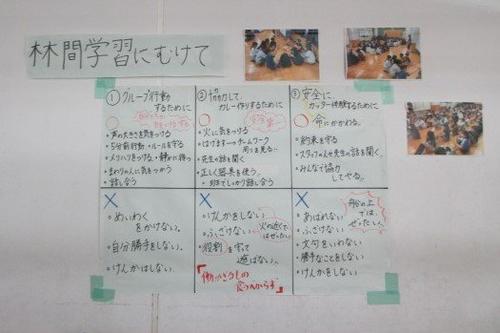 林間学習にむけて
① グループ行動
するために
・声の大きさを気をつける
・5分前行動・ルールを守る
・メリハリをつける・静かに待つ
・まわりの人に気をつかう
・話し合う
② 協力して、
カレー作りするために
安全第一
・火に気をつける
・はげます→チームワーク
・先生の話を聞く
・正しく器具を使う。
・班でしっかり話し合う
③ 安全に
カッター体験するために
命にかかわる。
・約束を守る
・スタッフの人や先生の話を聞く。
・みんなで協力
してやる。
×
・めいわく
をかけない。
・自分勝手をしない。
・けんかはしない。
×
・けんかをしない
・ふざけない
火の近くで
はぜったい。
・役割を守って
遊ばない。
×
船の上
では、
ぜったい。
・あばれない
・ふざけない
・文句をいわない
・勝手なことをしない
・けんかをしない